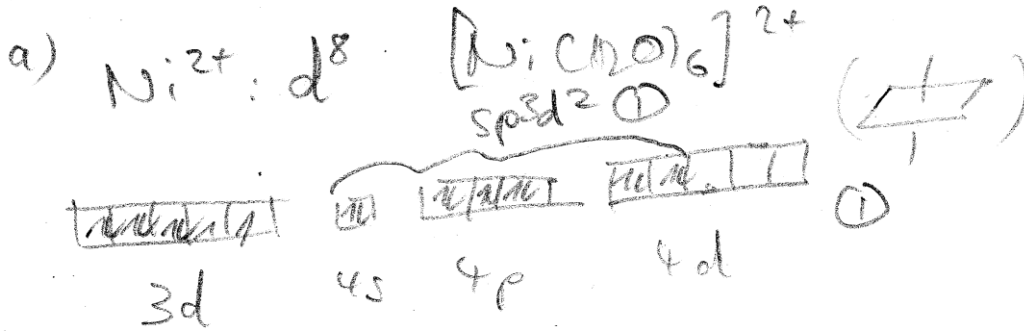 a) Ni²⁺: d⁸ [Ni(H2O)6]²⁺
sp3d² ①
①
3d 4s 4p 4d